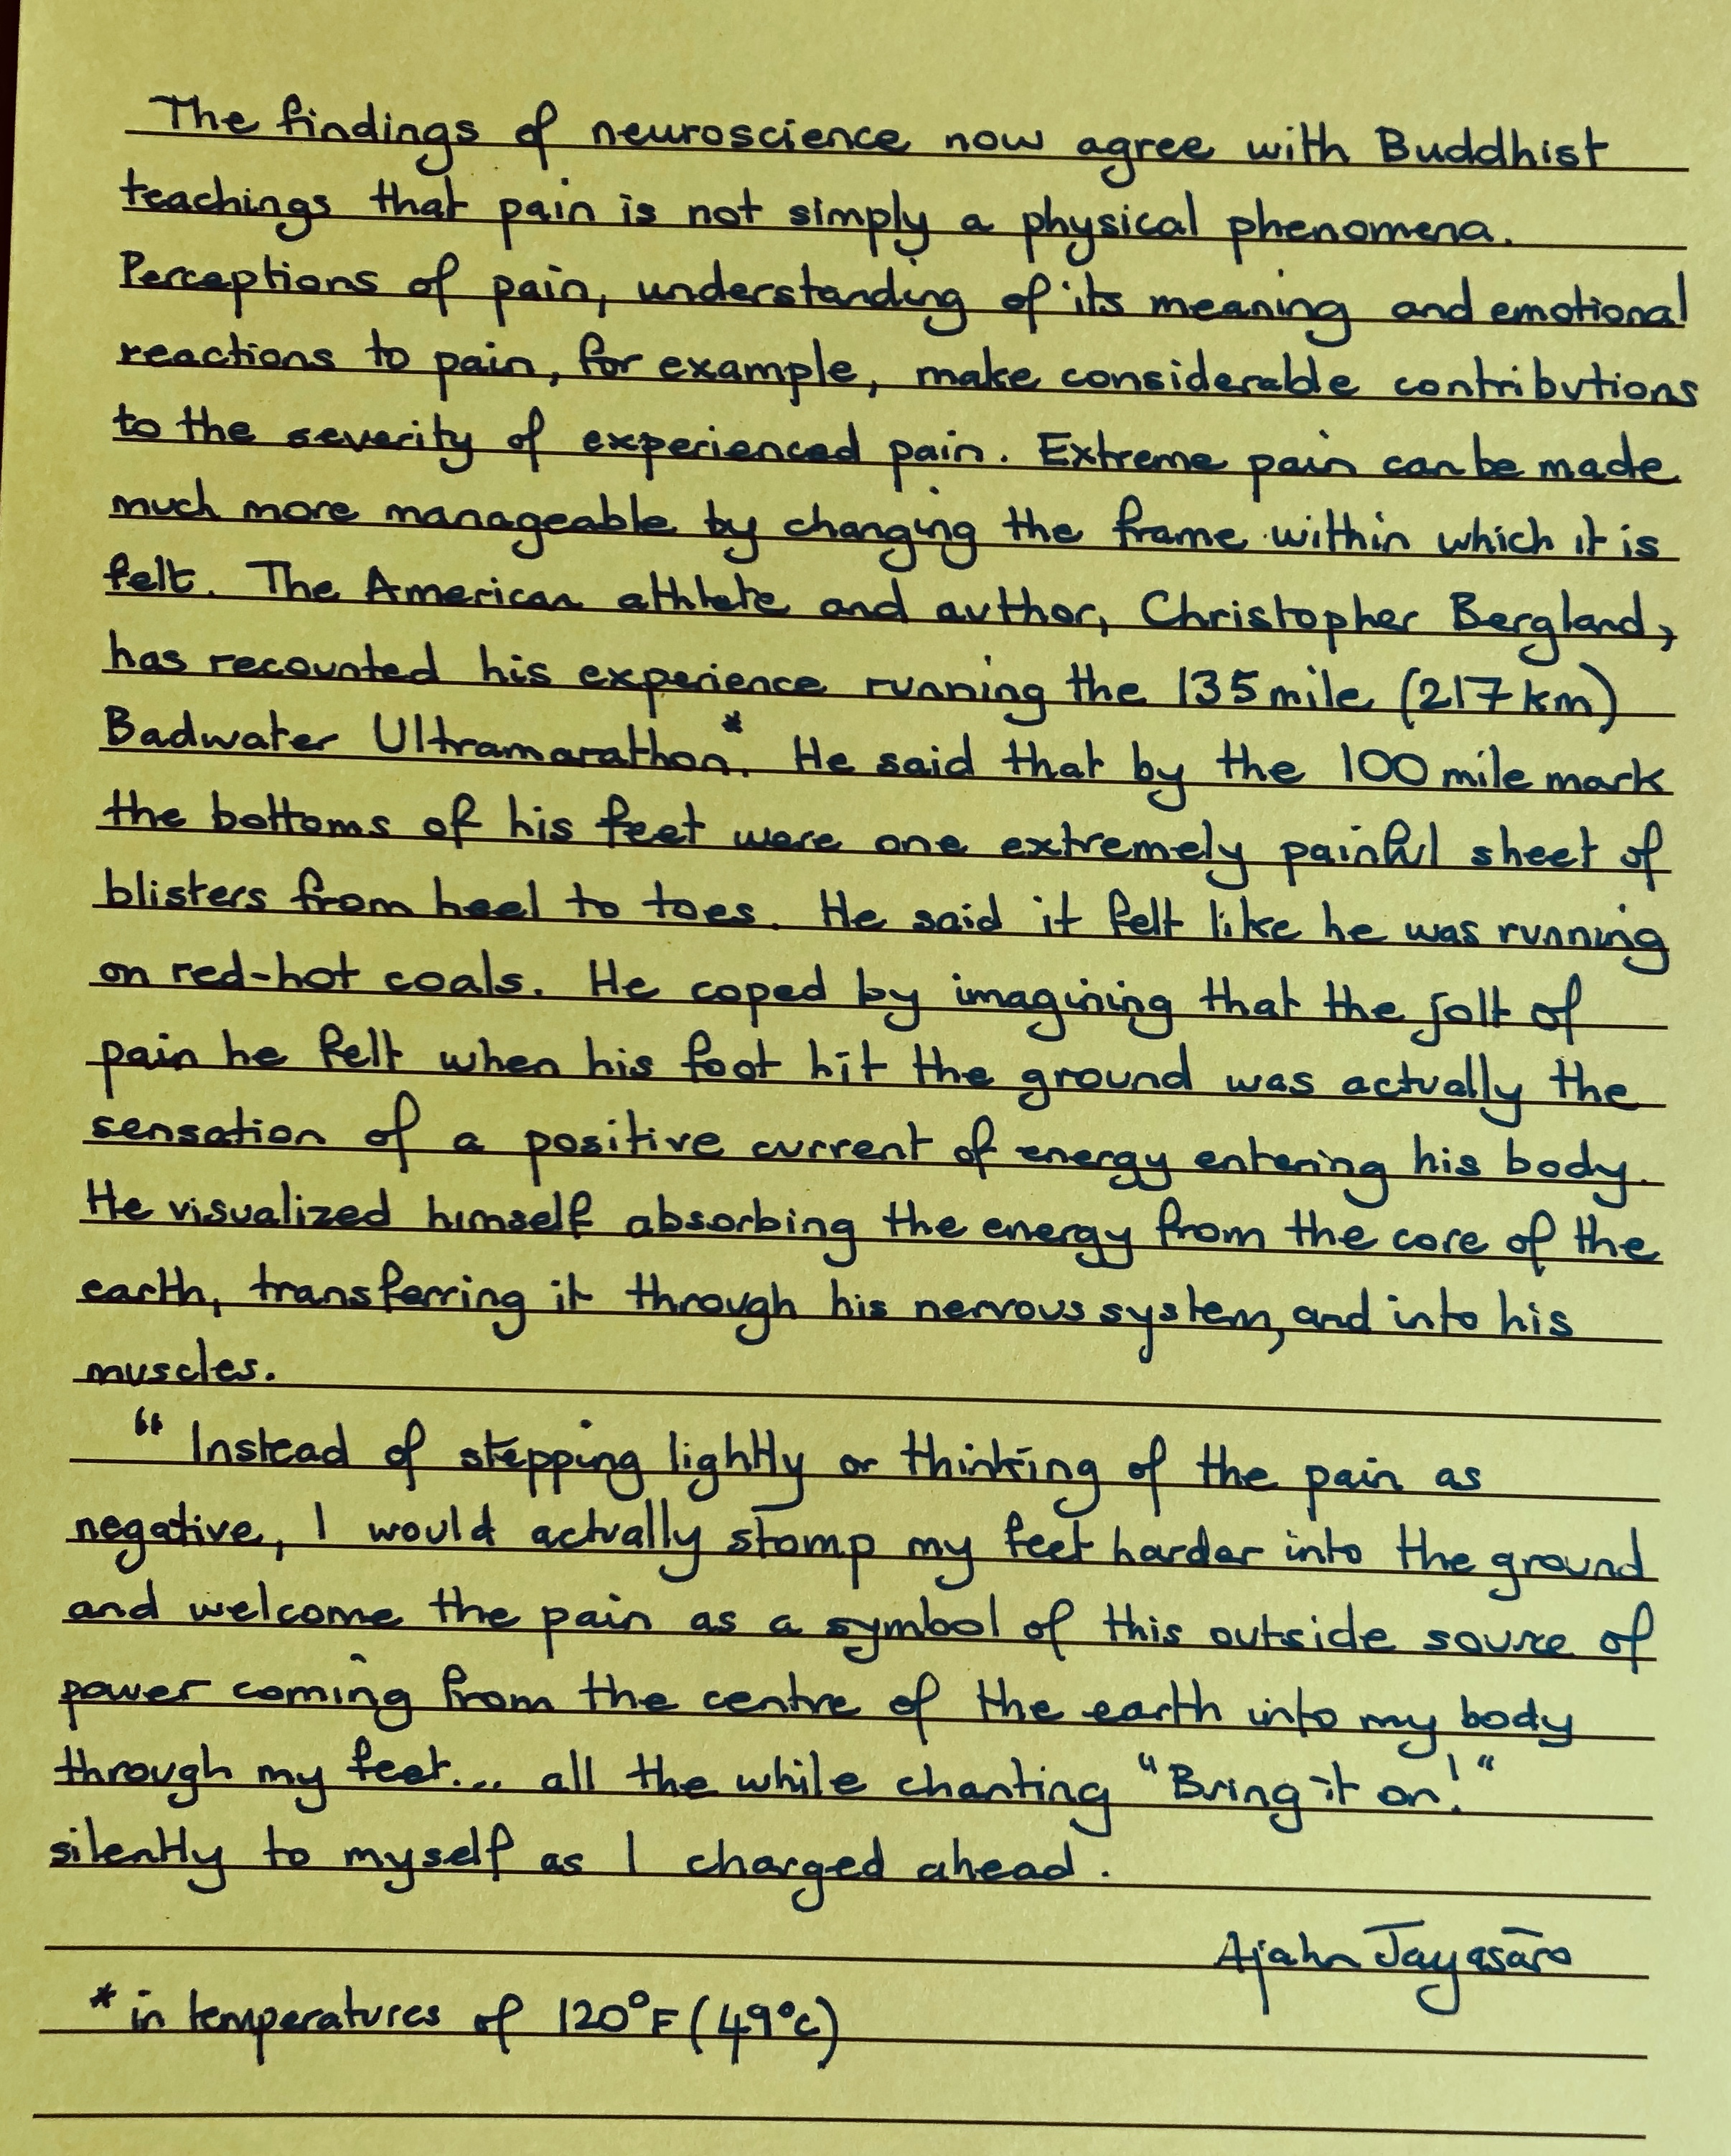 The findings of neuroscience now agree with Buddhist
teachings that pain is not simply a physical phenomena.
Perceptions of pain, understanding of its meaning and emotional
reactions to pain, for example, make considerable contributions
to the severity of experienced pain. Extreme pain can be made
much more manageable by changing the frame within which it is
felt. The American athlete and author, Christopher Bergland,
has recounted his experience running the 135 mile (217 km)
Badwater Ultramarathon*. He said that by the 100 mile mark
the bottoms of his feet were one extremely painful sheet of
blisters from heel to toes. He said it felt like he was running
on red-hot coals. He coped by imagining that the jolt of
pain he felt when his foot hit the ground was actually the
sensation of a positive current of energy entering his body.
He visualized himself absorbing the energy from the core of the
earth, transferring it through his nervous system, and into his
muscles.
“Instead of stepping lightly or thinking of the pain as
negative, I would actually stomp my feet harder into the ground
and welcome the pain as a symbol of this outside source of
power coming from the centre of the earth into my body
through my feet.... all the while chanting “Bring it on!“
silently to myself as I charged ahead.
Ajahn Jayasāro
* in temperatures of 120°F (49°c)